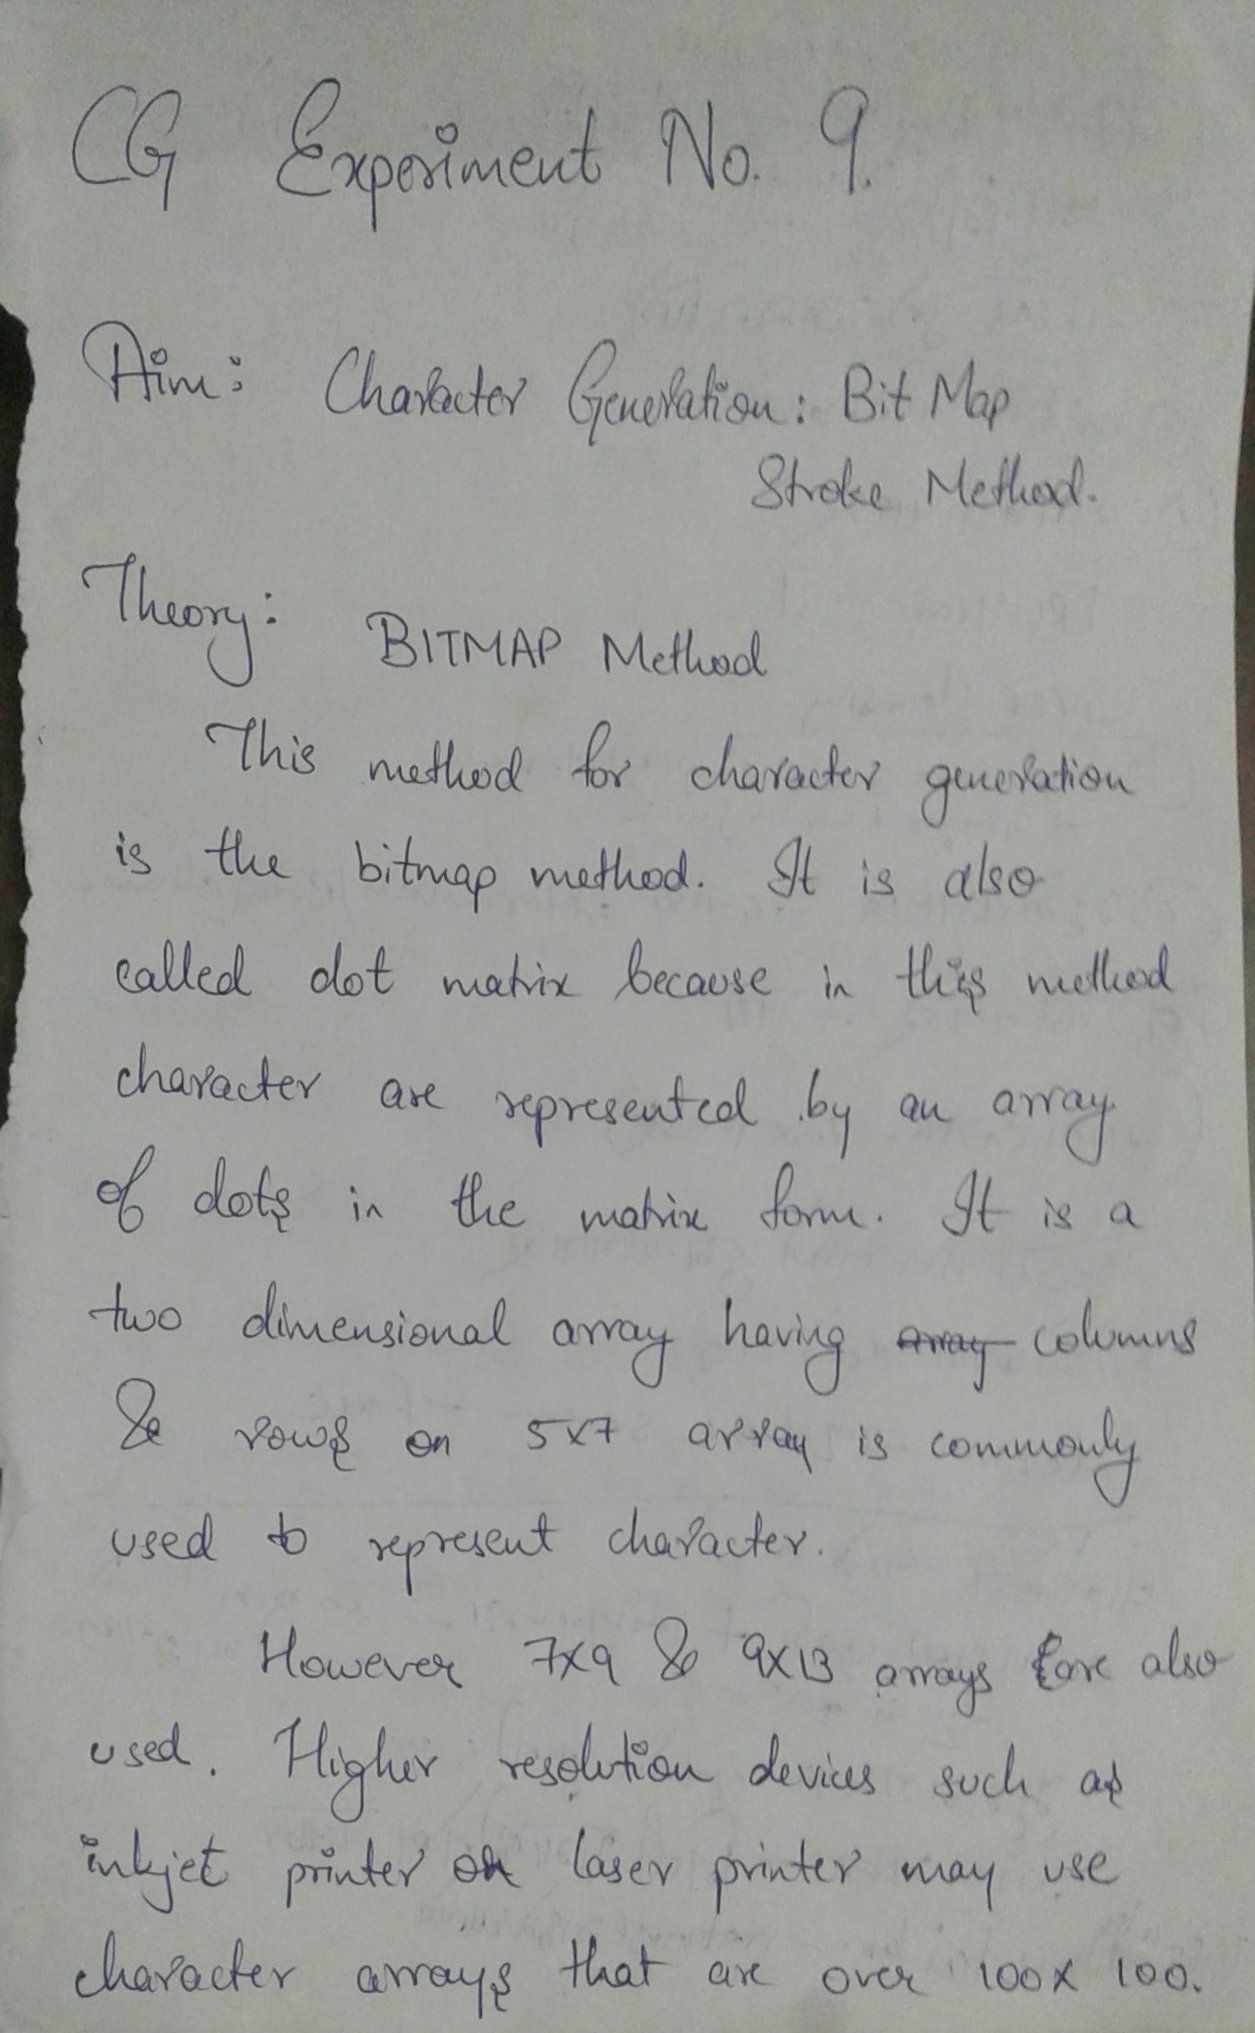 CG Experiment No. 9.
Aim: Character Generation: Bit Map
Stroke Method.
Theory:
BITMAP Method
This method for character generation
is the bitmap method. It is also
called dot matrix because in this method
character are represented by an array
of dots in the matrix form. It is a
two dimensional array having array columns
& rows on 5x7 array is commonly
used to represent character.
However 7x9 & 9x13 arrays are also
used. Higher resolution devices such as
inkjet printer or laser printer may use
character arrays that are over 100x100.